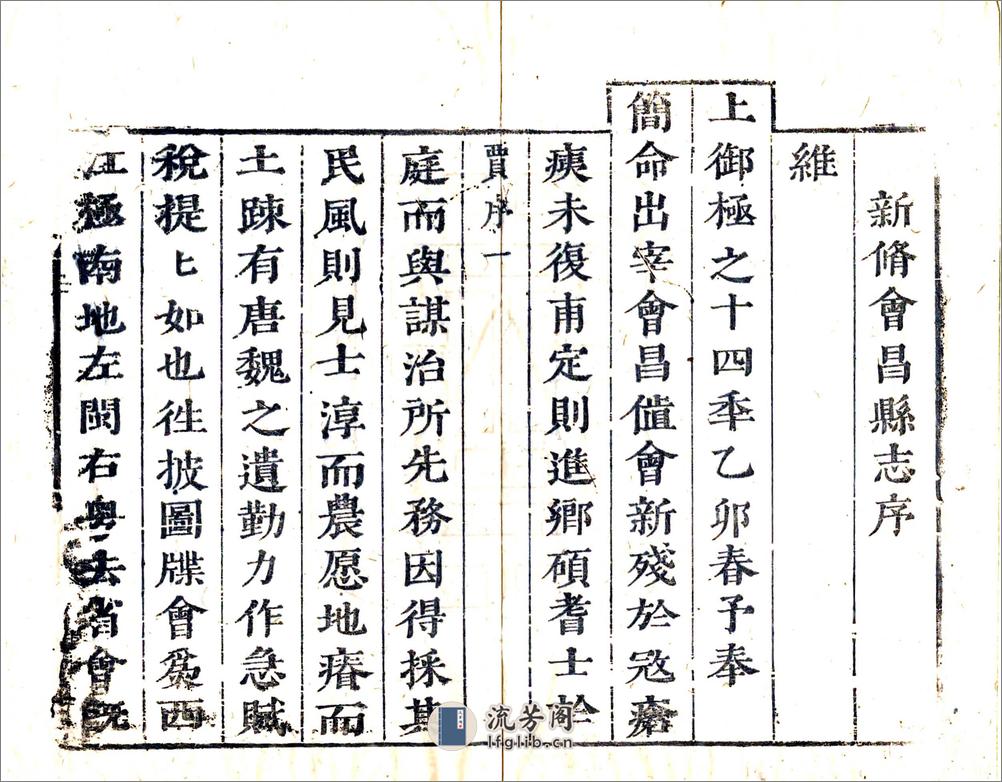 新脩會昌縣志序
維
上御極之十四年乙卯春予奉
簡命出宰會昌值會新殘於寇瘡
痍未復甫定則進鄉碩耆士於
賈序一
庭而與謀治所先務因得採其
民風則見士淳而農愿地瘠而
土踈有唐魏之遺勤力作急賦
稅提匕如也徃披圖牒會爲西
江極南地左閩右粵去省會旣
流芳阁
lfglib.cn